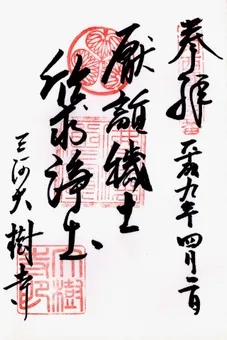 奉拝
平成九年四月二日
厭離穢土
欣求浄土
三河大樹寺